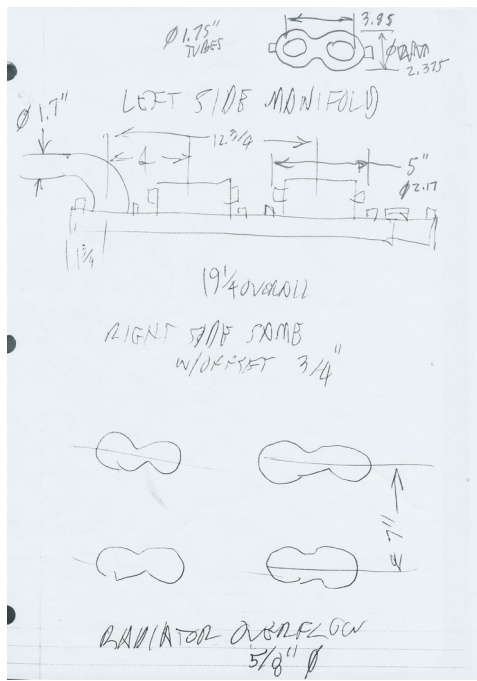 3.85
Ø 1.75"
TUBES
2.375
LEFT SIDE MANIFOLD
Ø 1.7"
12 3/4
4
5"
Ø2.17
1 3/4
19 1/4 OVERALL
RIGHT SIDE SAME
W/OFFSET 3/4"
7"
RADIATOR OVERFLOW
5/8" Ø